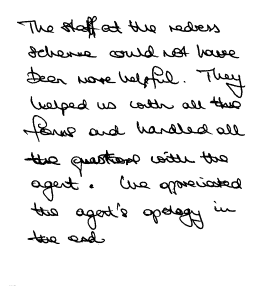 The staff at the redress
scheme could not have
been more helpful. They
helped us with all the
forms and handled all
the questions with the
agent. We appreciated
the agent's apology in
the end